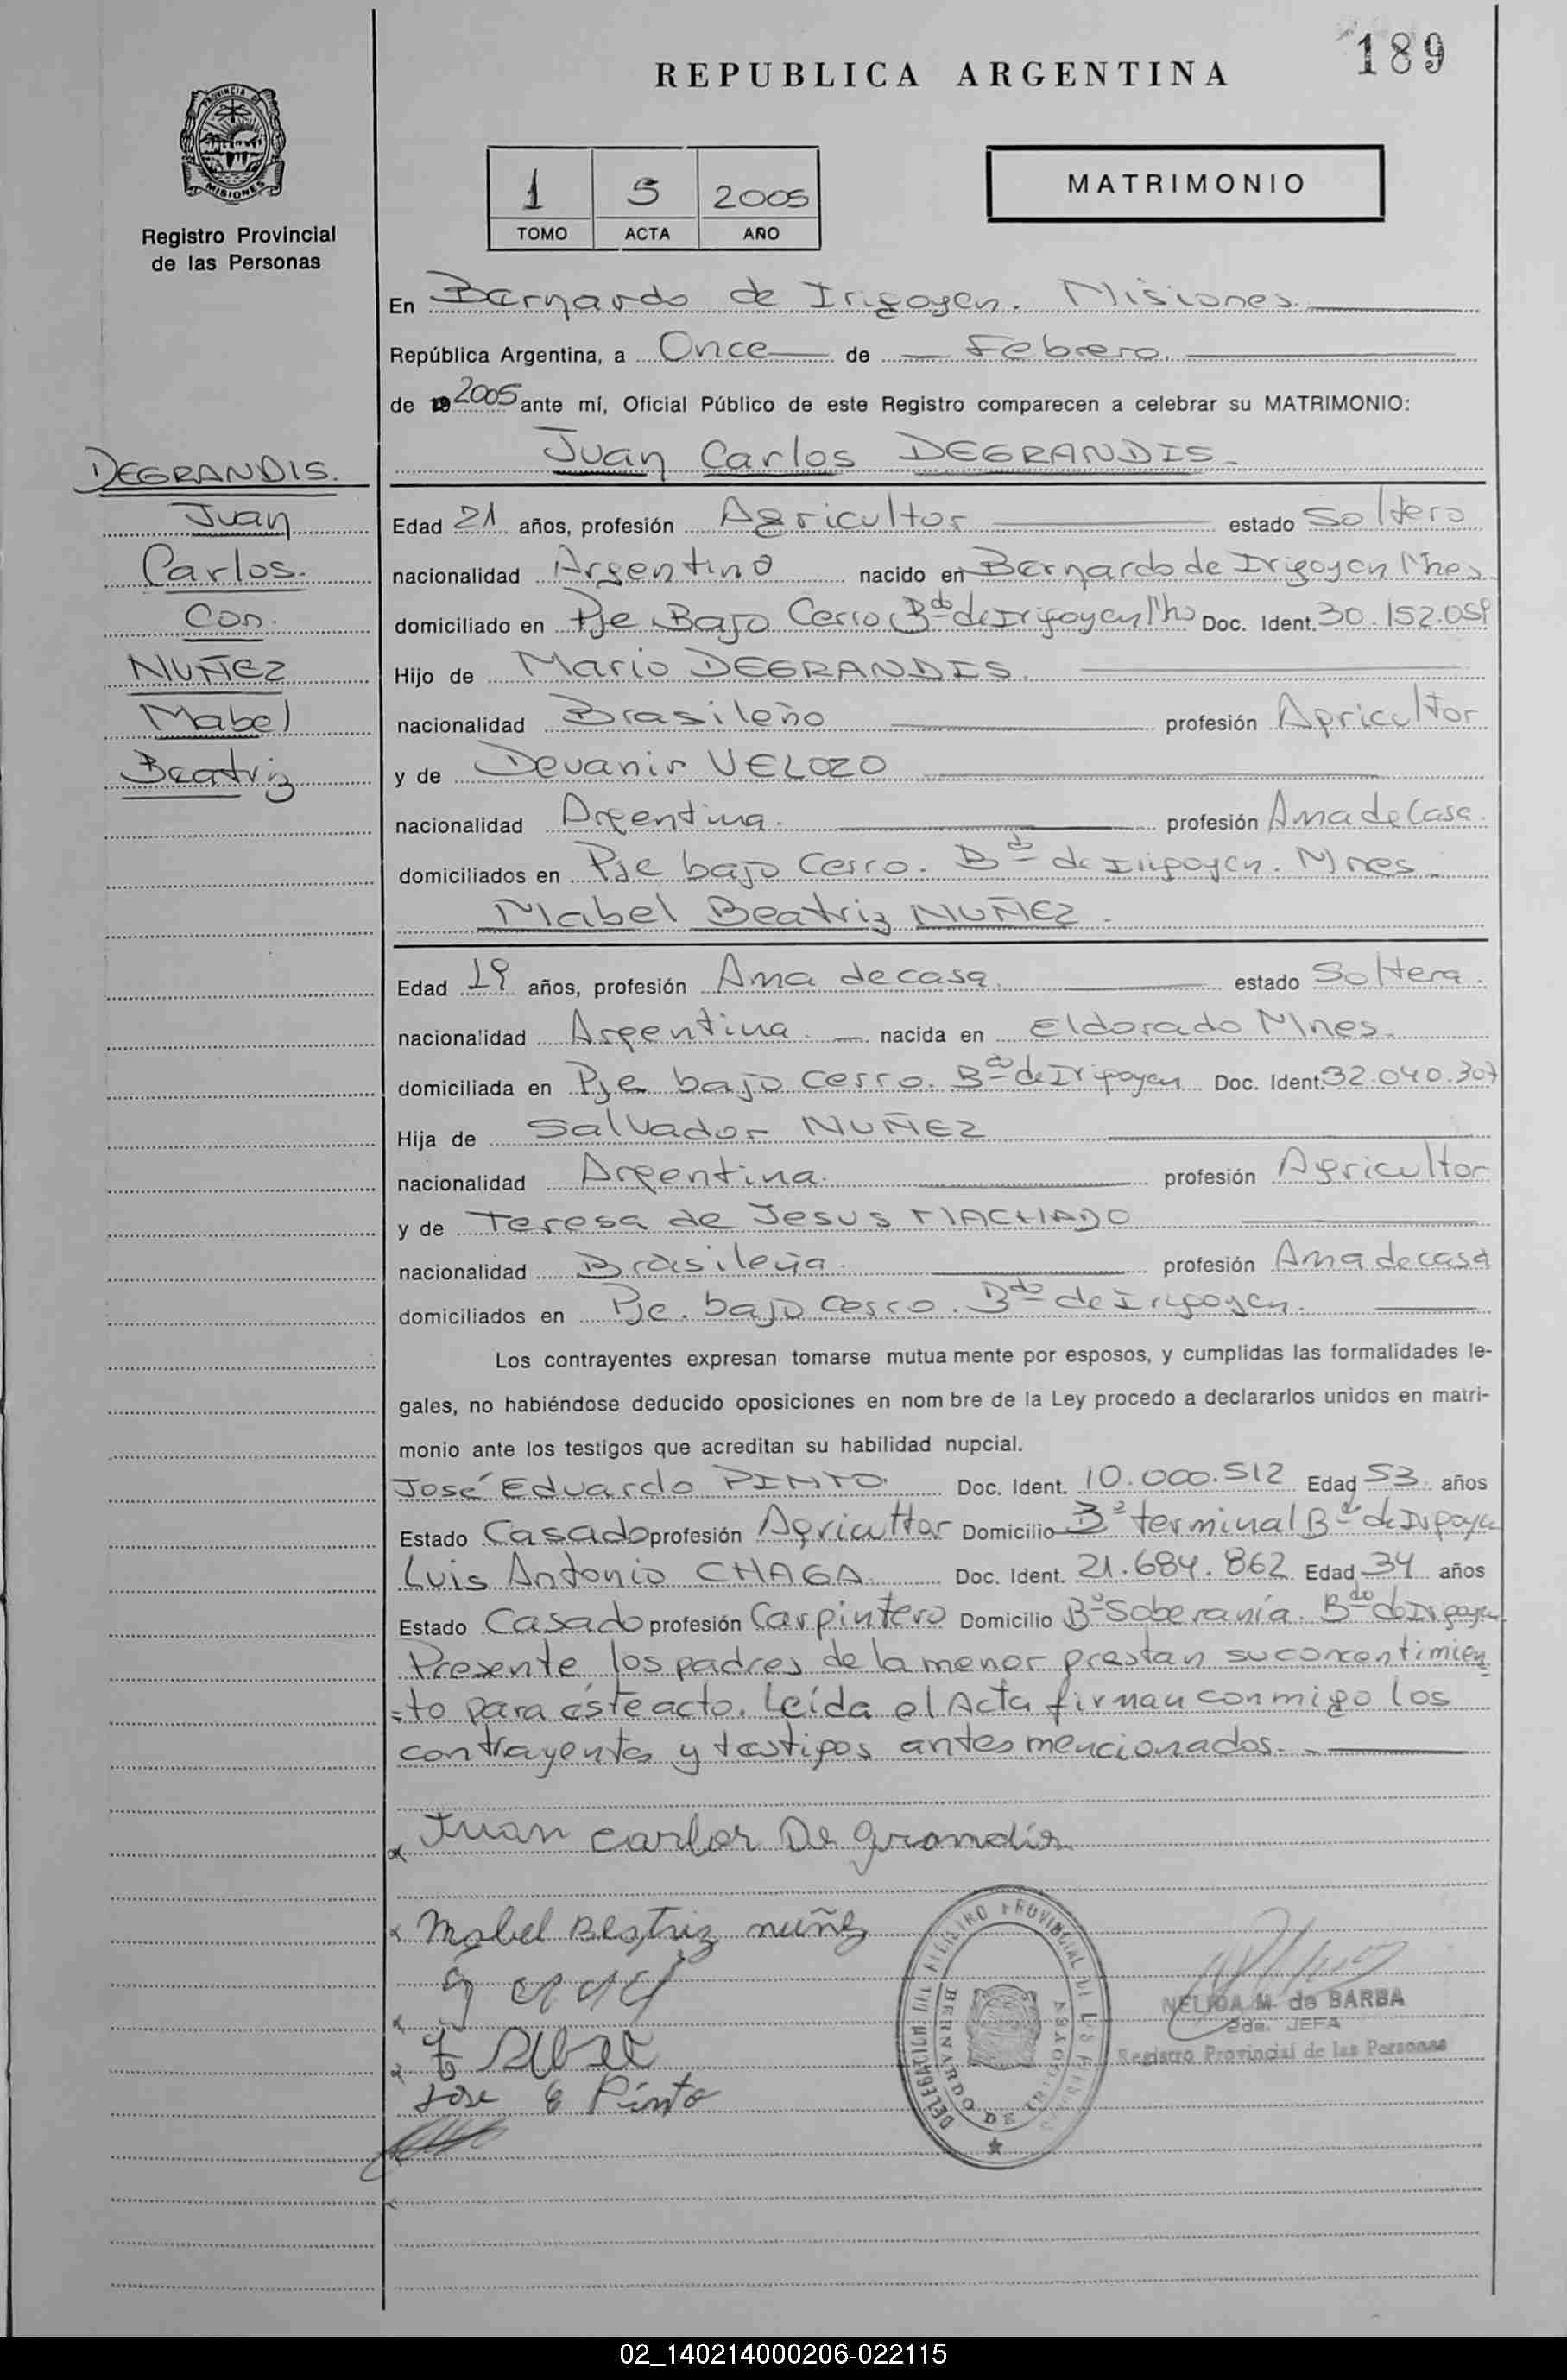 189
REPUBLICA ARGENTINA
PROVINCIA DE
MISIONES
Registro Provincial
de las Personas
1 5 2005
TOMO ACTA AÑO
MATRIMONIO
En Bernardo de Irigoyen. Misiones
República Argentina, a Once de Febrero.
de 19 2005 ante mí, Oficial Público de este Registro comparecen a celebrar su MATRIMONIO:
Juan Carlos DEGRANDIS.
DEGRANDIS.
Juan
Carlos.
Con.
NUÑEZ
Mabel
Beatriz
Edad 21 años, profesión Agricultor estado Soltero
nacionalidad Argentino nacido en Bernardo de Irigoyen Mnes
domiciliado en Pje Bajo Cerro Bdo de Irigoyen Mns Doc. Ident. 30.152.059
Hijo de Mario DEGRANDIS.
nacionalidad Brasileño profesión Agricultor
y de Devanir VELOZO
nacionalidad Argentina. profesión Ama de Casa.
domiciliados en Pje bajo Cerro. Bdo de Irigoyen. Mnes.
Mabel Beatriz NUÑEZ.
Edad 19 años, profesión Ama de casa. estado Soltera.
nacionalidad Argentina. nacida en Eldorado Mnes.
domiciliada en Pje bajo cerro. Bdo de Irigoyen Doc. Ident. 32.040.307
Hija de Salvador NUÑEZ
nacionalidad Argentina. profesión Agricultor
y de Teresa de Jesus MACHADO
nacionalidad Brasileña. profesión Ama de casa
domiciliados en Pje. bajo cerro. Bdo de Irigoyen.
Los contrayentes expresan tomarse mutua mente por esposos, y cumplidas las formalidades le-
gales, no habiéndose deducido oposiciones en nom bre de la Ley procedo a declararlos unidos en matri-
monio ante los testigos que acreditan su habilidad nupcial.
José Eduardo PINTO. Doc. Ident. 10.000.512 Edad 53 años
Estado Casado profesión Agricultor Domicilio Bº terminal Bdo de Irigoyen
Luis Antonio CHAGA. Doc. Ident. 21.684.862 Edad 34 años
Estado Casado profesión Carpintero Domicilio Bº Soberanía. Bdo de Irigoyen
Presente, los padres de la menor prestan su concentimien
=to para éste acto. Leída el Acta firman conmigo los
contrayentes y testigos antes mencionados.
Juan Carlos De grandis
Mabel Beatriz nuñez
Jose E Pinto
DELEGACION DEL REGISTRO PROVINCIAL DE LAS PERSONAS
BERNARDO DE IRIGOYEN
NELIDA M. de BARBA
2da. JEFA
Registro Provincial de las Personas
02_140214000206-022115